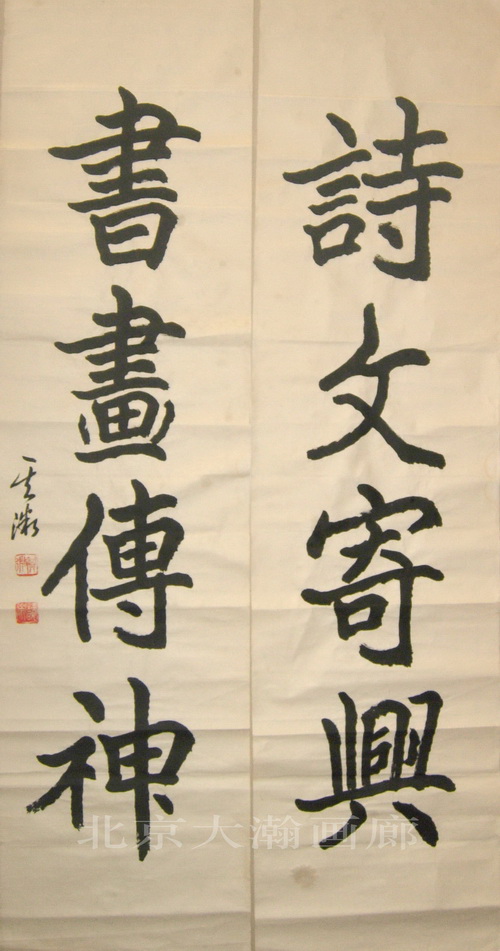 詩文寄興
書畫傳神
北京大瀚画廊